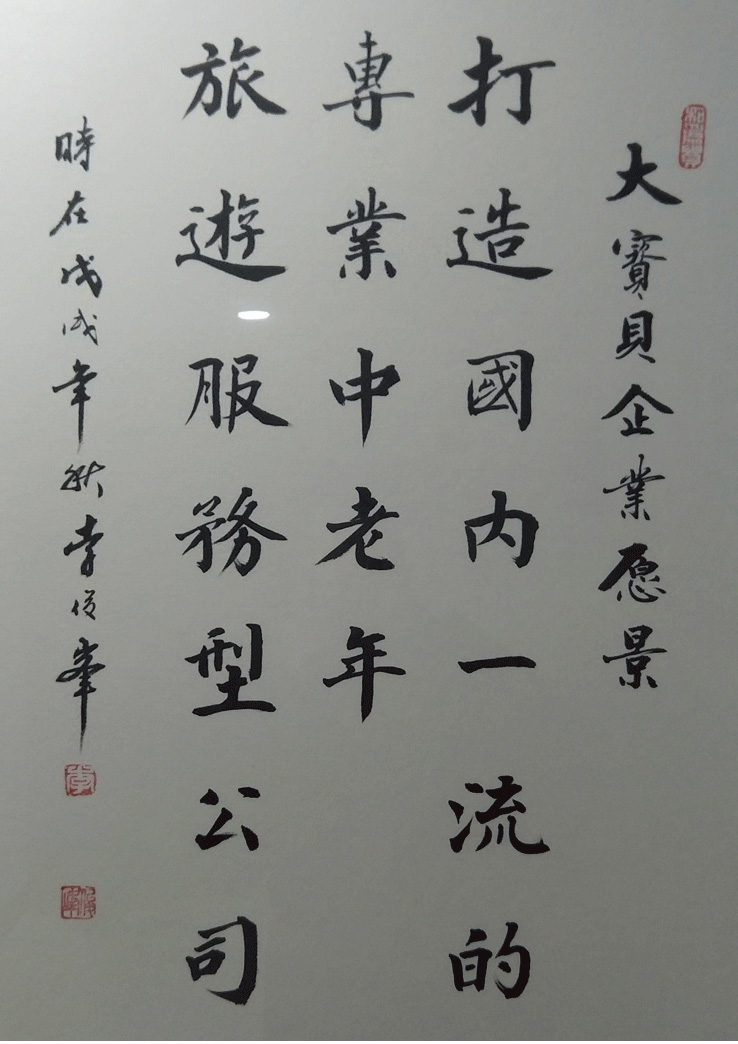 大寶貝企業愿景
打造國内一流的
專業中老年
旅遊服務型公司
時在戊戌年秋李俊峯